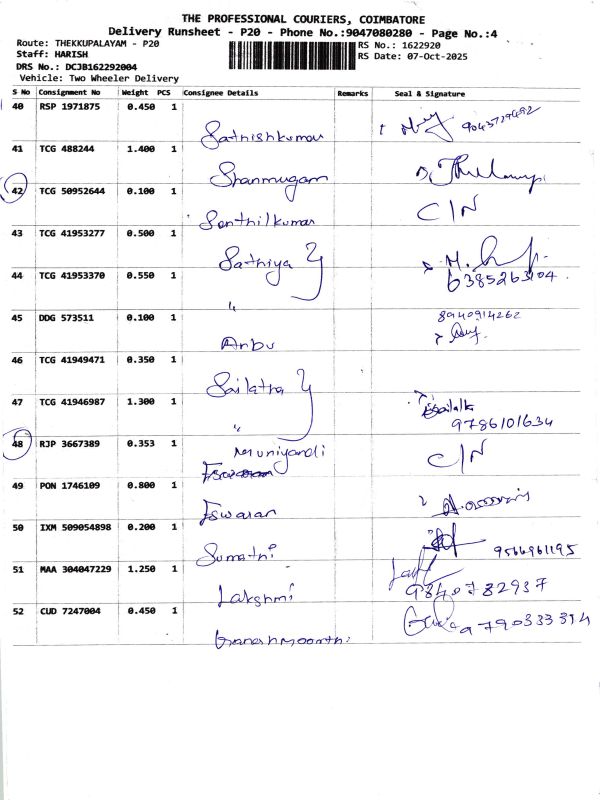 THE PROFESSIONAL COURIERS, COIMBATORE
Delivery Runsheet - P20 - Phone No.:9047080280 - Page No.:4
Route: THEKKUPALAYAM - P20
Staff: HARISH
DRS No.: DCJB162292004
Vehicle: Two Wheeler Delivery
RS No.: 1622920
RS Date: 07-Oct-2025
S No Consignment No Weight PCS Consignee Details Remarks Seal & Signature
40 RSP 1971875 0.450 1
Sathishkumar
41 TCG 488244 1.400 1
Shanmugam
42 TCG 50952644 0.100 1 C/N
Senthilkumar
43 TCG 41953277 0.500 1
Sathiya
44 TCG 41953370 0.550 1 6385263104
"
45 DDG 573511 0.100 1 8940914262
Anbu
46 TCG 41949471 0.350 1
Sailatha
47 TCG 41946987 1.300 1
" 9786101634
48 RJP 3667389 0.353 1 C/N
Muniyandi
49 PON 1746109 0.800 1
Eswaran
50 IXM 509054898 0.200 1 9566961195
Sumathi
51 MAA 304047229 1.250 1
Lakshmi 9840782937
52 CUD 7247004 0.450 1 9790333394
Ganeshmoorthi